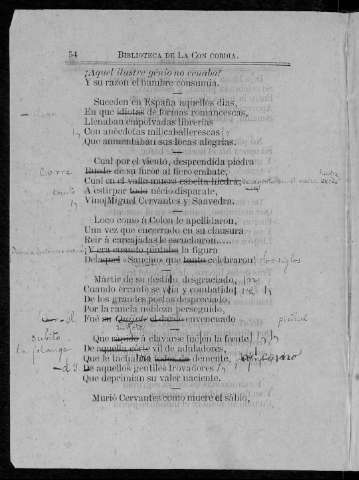 54 BIBLIOTECA DE LA CONCORDIA.
¡Aquel ilustre génio no cenaba!
Y su razon el hambre consumia.
Suceden en España aquellos dias,
En que idiotas de formas romancescas,
Llenaban empolvadas librerías
Con anécdotas mil caballerescas
Que aumentaban sus locas alegrías.
Cual por el viento, desprendida piedra
Rueda de su furor al fiero embate,
Cual en el valle muere esbelta hiedra,
A estirpar todo nécio disparate,
Vino Miguel Cervantes y Saavedra.
Loco como á Colon le apellidaron,
Una vez que encerrado en su clausura
Reir á carcajadas le escucharon....
Y era cuando pintaba la figura
Del aquel «Sancho» que tanto celebraron
Mártir de su destino desgraciado,
Cuando errante se veia y combatido
De los grandes poetas despreciado,
Por la rancia nobleza perseguido,
Fué su dardo envenenado
Que á clavarse fué en la frente
De aquella córte vil de aduladores,
Que le tachaba todos de demente,
De aquellos gentiles trovadores
Que deprimian su valer naciente.
Murió Cervantes como muere el sábio,
corre
súbito
la falange
como